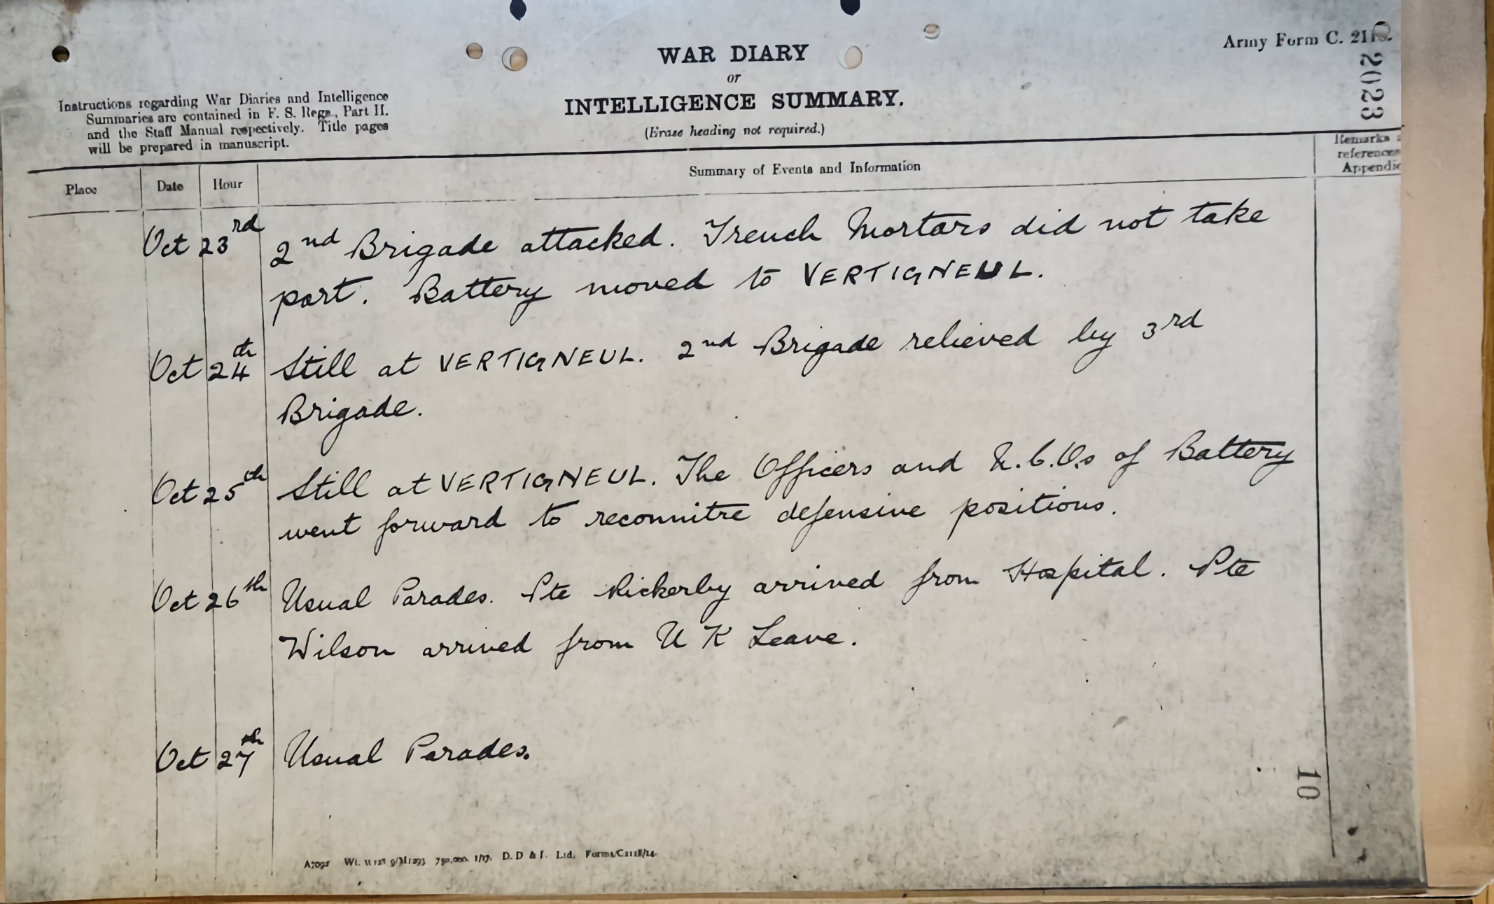 Army Form C. 211
2023
WAR DIARY
or
INTELLIGENCE SUMMARY.
(Erase heading not required.)
Instructions regarding War Diaries and Intelligence
Summaries are contained in F. S. Regs., Part II.
and the Staff Manual respectively. Title pages
will be prepared in manuscript.
Place Date Hour Summary of Events and Information
Remarks
references
Appendic
Oct 23rd 2nd Brigade attacked. Trench Mortars did not take
part. Battery moved to VERTIGNEUL.
Oct 24th Still at VERTIGNEUL. 2nd Brigade relieved by 3rd
Brigade.
Oct 25th Still at VERTIGNEUL. The Officers and N.C.O.s of Battery
went forward to reconnitre defensive positions.
Oct 26th Usual Parades. Pte Rickerby arrived from Hospital. Pte
Wilson arrived from U K Leave.
Oct 27th Usual Parades.
10
A7092 Wt. 750,000. 1/17. D. D & L. Ltd.